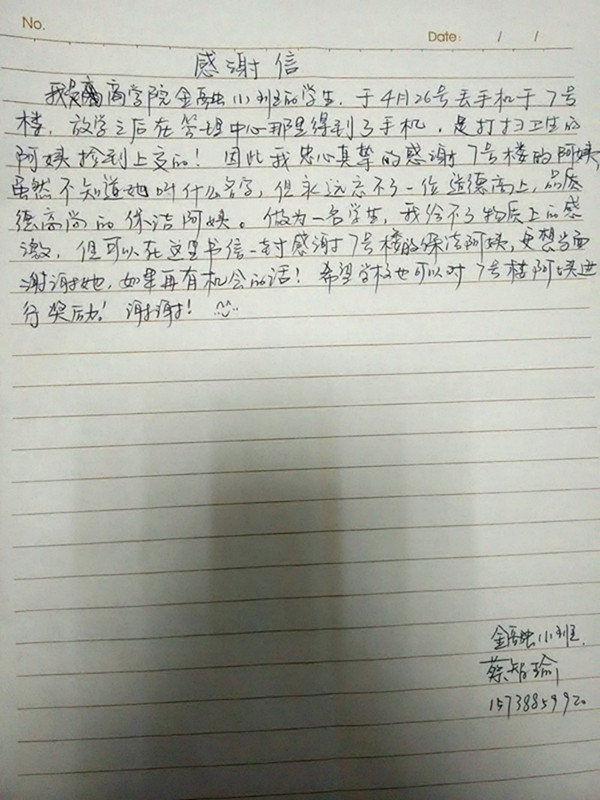 No.
Date: / /
感谢信
我是商学院金融小班的学生，于4月26号丢手机于7号
楼，放学之后在管理中心那里得到了手机，是打扫卫生的
阿姨捡到上交的！因此我忠心真挚的感谢7号楼的阿姨，
虽然不知道她叫什么名字，但永远忘不了一位道德高上，品质
德高尚的保洁阿姨。做为一名学生，我给不了物质上的感
激，但可以在这里书信一封感谢7号楼的保洁阿姨，更想当面
谢谢她，如果再有机会的话！希望学校也可以对7号楼阿姨进
行奖励！谢谢！
金融小班.
蔡智瑜
15738859920